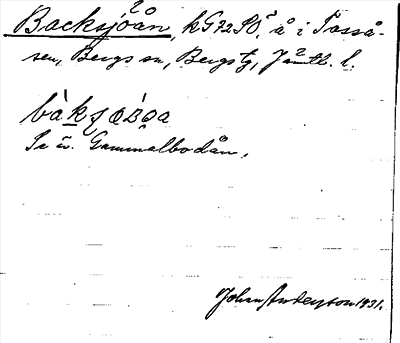 Backsjöån, kG72SÖ, å i Tosså-
sen, Bergs sn, Bergs tg, Jämtl. l.
Se äv. Gammalbodån.
Johan Anderson 1931.